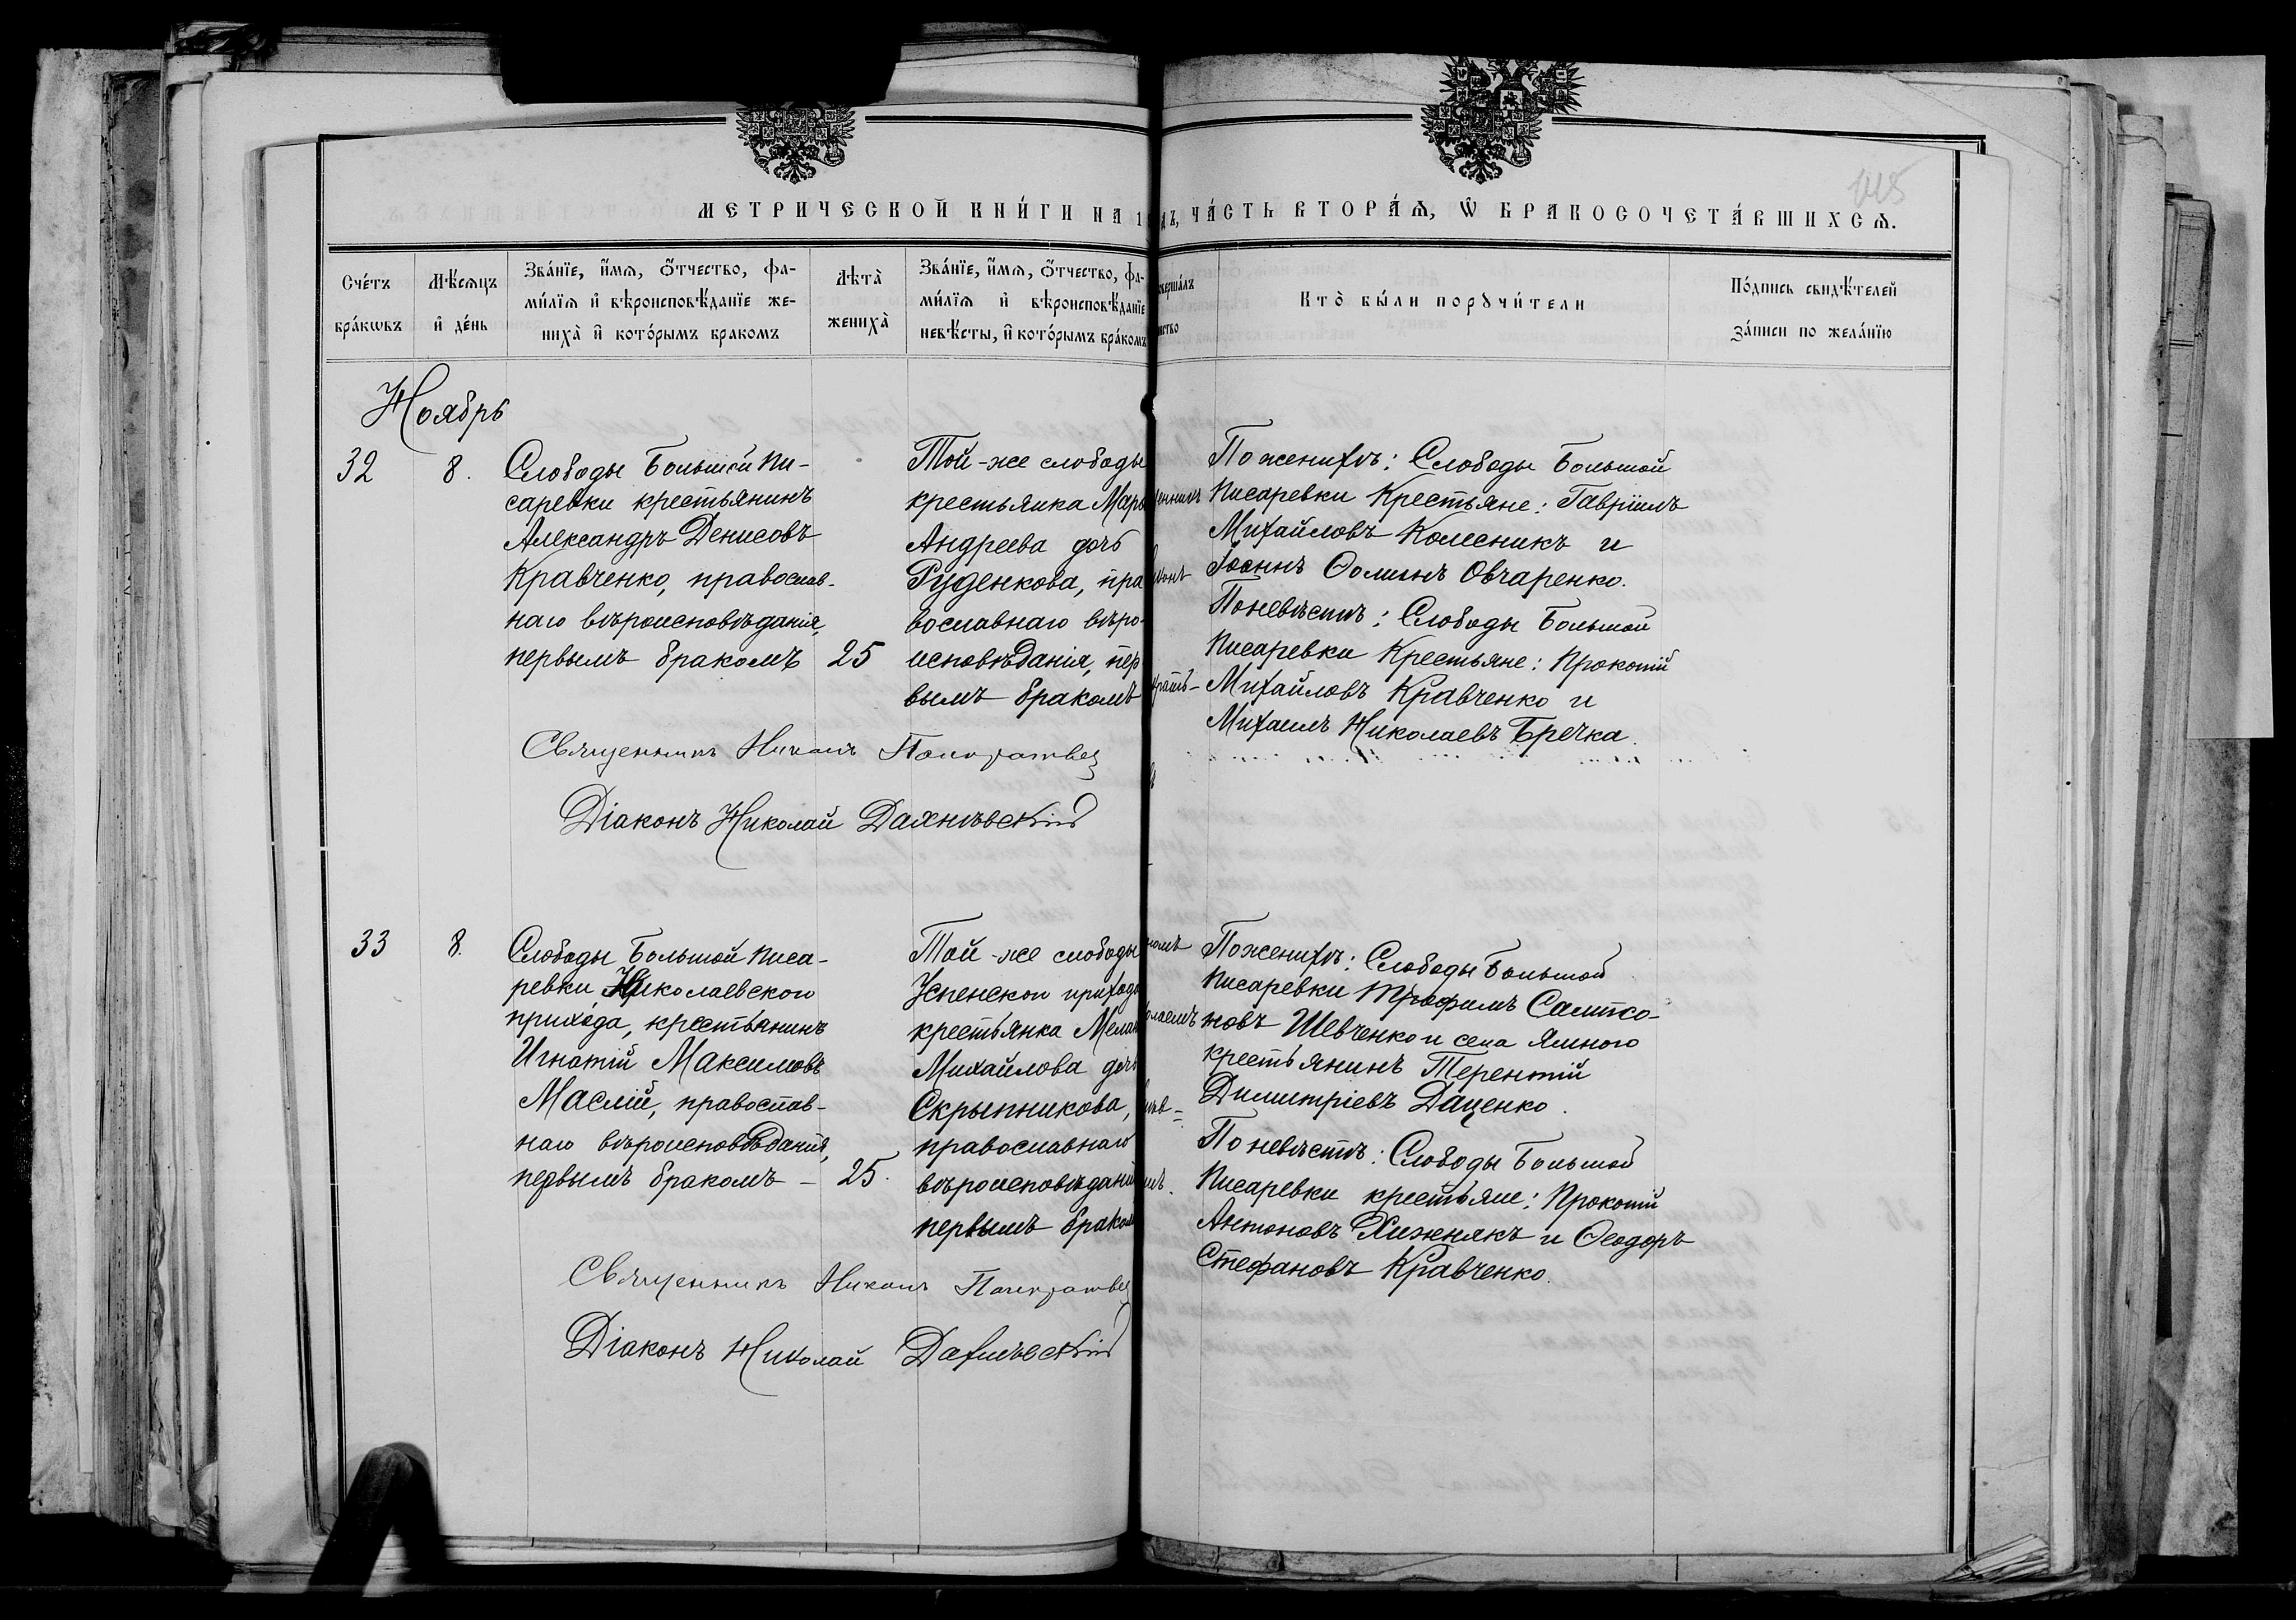 115
МЕТРИЧЕСКОЙ КНИ́ГИ НА 1
дъ, ЧА́СТЬ ВТОРА́Ѧ, Ѡ БРАКОСОЧЕТА́ВШИХСѦ.
Сче́тъ
бра́кѡвъ
Мѣ́сѧцъ
и҆ де́нь
Зва́нїе, и҆́мѧ, ѻ҆́тчество, фа-
ми́лїѧ и҆ вѣроисповѣ́данїе же-
ниха̀ и҆ кото́рымъ бракомъ
Лѣта̀
жениха̀
Зва́нїе, и҆́мѧ, ѻ҆́тчество, фа-
ми́лїѧ и҆ вѣроисповѣ́данїе
невѣ́сты, и҆ кото́рымъ бра́комъ
верша́лъ
нство
Кто̀ бы́ли порꙋчи́тели
По́дпись свидѣ́телей
за́писи по жела́нїю
Ноябрь
32
8.
Слободы Большой Пи-
саревки крестьянинъ
Александръ Денисовъ
Кравченко, православ-
наго вѣроисповѣданія,
первымъ бракомъ
25
Той-же слободы
крестьянка Мар
Андреева дочь
Руденкова, пра
вославнаго вѣро-
исповѣданія, пер
вымъ бракомъ
енникъ
конъ
Поженихѣ: Слободы Большой
Писаревки Крестьяне: Гавріилъ
Михайловъ Колесникъ и
Іоаннъ Ѳоминъ Овчаренко.
Поневѣстѣ: Слободы Большой
Писаревки Крестьяне: Прокопій
Михайловъ Кравченко и
Михаилъ Николаевъ Бречка.
Священникъ Никонъ
Діаконъ Николай Дахнѣвскій
33
8.
Слободы Большой Писа-
ревки, Николаевскаго
прихода, крестьянинъ
Игнатій Максимовъ
Маслій, православ-
наго вѣроисповѣданія,
первымъ бракомъ -
25.
Той-же слободы
Успенскаго прихода
крестьянка Мелан
Михайлова дочь
Скрыпникова,
православнаго
вѣроисповѣдані
первымъ браком
Поженихѣ: Слободы Большой
Писаревки Трофимъ Сампсо-
новъ Шевченко и села Ямного
крестьянинъ Терентій
Димитріевъ Даценко.
Поневѣстѣ: Слободы Большой
Писаревки крестьяне: Прокопій
Антоновъ Хижнякъ и Ѳеодоръ
Стефановъ Кравченко.
Священникъ Никонъ
Діаконъ Николай Дахнѣвскій